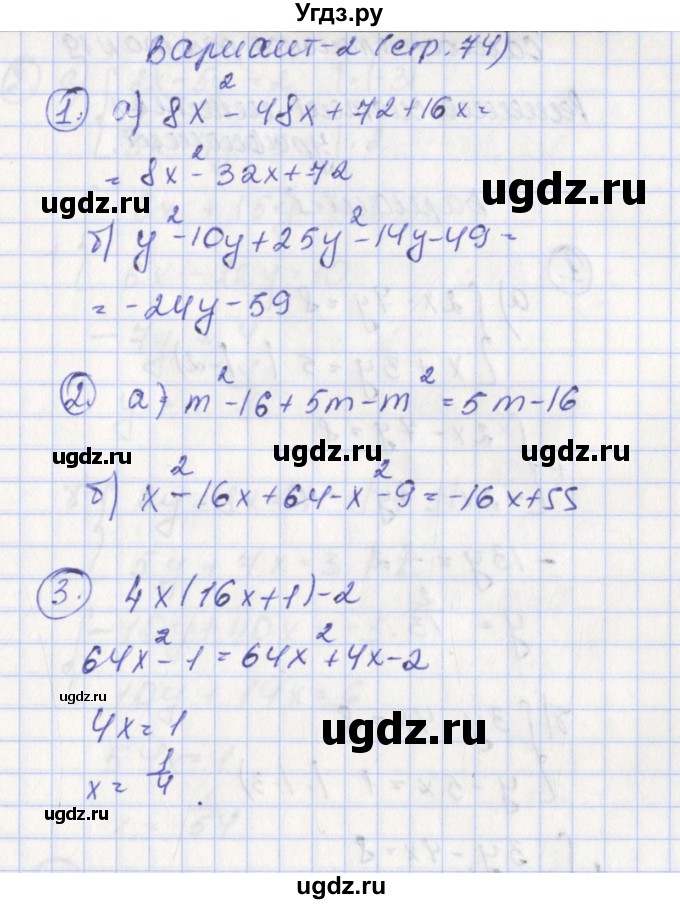 Угдз.ру
Вариант-2 (стр. 74)
1. а) 8x² - 48x + 72 + 16x =
= 8x² - 32x + 72
ugdz.ru
ugdz.ru
б) y² - 10y + 25y² - 14y - 49 =
= -24y - 59
2. а) m² - 16 + 5m - m² = 5m - 16
ugdz.ru
ugdz.ru
б) x² - 16x + 64 - x² - 9 = -16x + 55
3. 4x(16x+1) - 2
64x² - 1 = 64x² + 4x - 2
ugdz.ru
4x = 1
ugdz.ru
x = 1/4
ugdz.ru
ugdz.ru